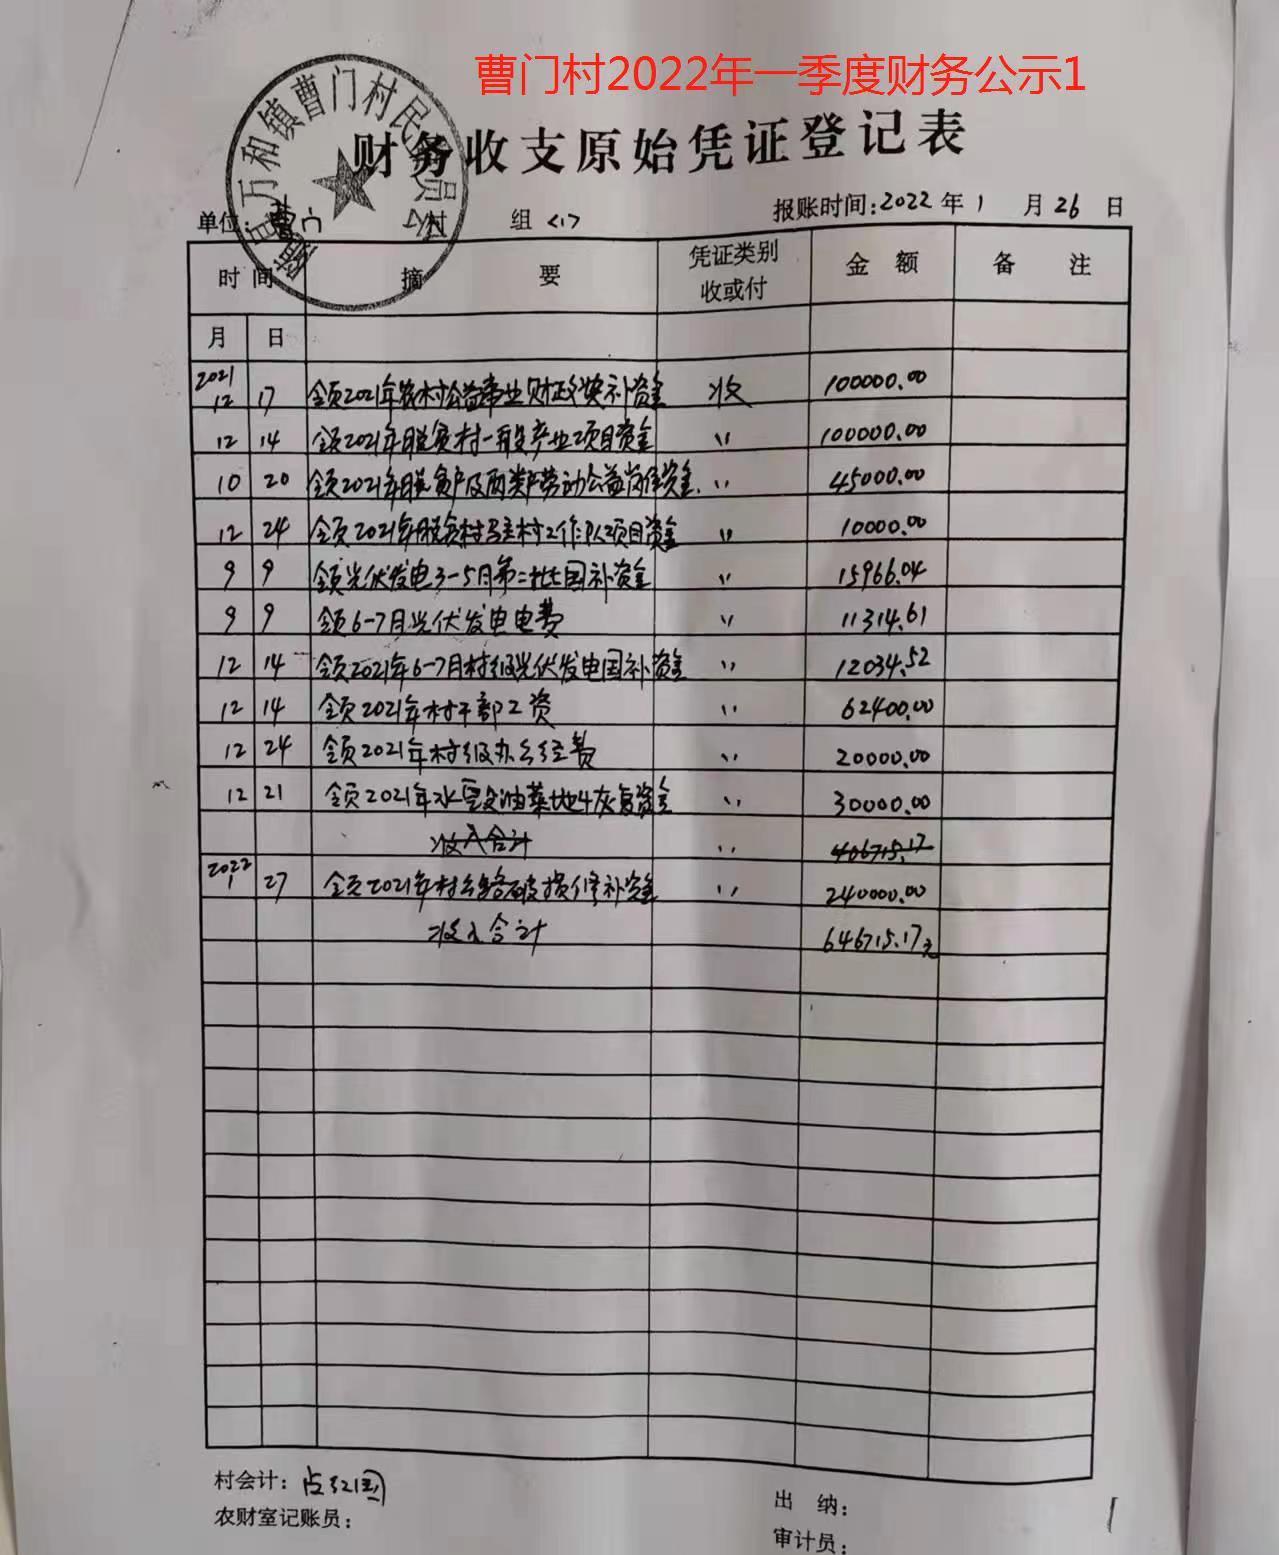 曹门村2022年一季度财务公示1
财务收支原始凭证登记表
万和镇曹门村民委员会
单位：曹门 村 组 <1> 报账时间：2022年1月26日
时间 摘要 凭证类别 收或付 金额 备注
月 日
2021
12 17 领2021年农村公益事业财政奖补资金 收 100000.00
12 14 领2021年脱贫村一般产业项目资金 〃 100000.00
10 20 领2021年脱贫户及两类户劳动公益岗位资金 〃 45000.00
12 24 领2021年脱贫村驻村工作队项目资金 〃 10000.00
9 9 领光伏发电3-5月第二批国补资金 〃 15966.04
9 9 领6-7月光伏发电电费 〃 11314.61
12 14 领2021年6-7月村级光伏发电国补资金 〃 12034.52
12 14 领2021年村干部工资 〃 62400.00
12 24 领2021年村级办公经费 〃 20000.00
12 21 领2021年水 油菜 资金 〃 30000.00
收入合计 〃 406715.17
2022
1 27 领2021年村公路破损修补资金 〃 240000.00
收入合计 646715.17元
村会计： 出纳：
农财室记账员： 审计员：